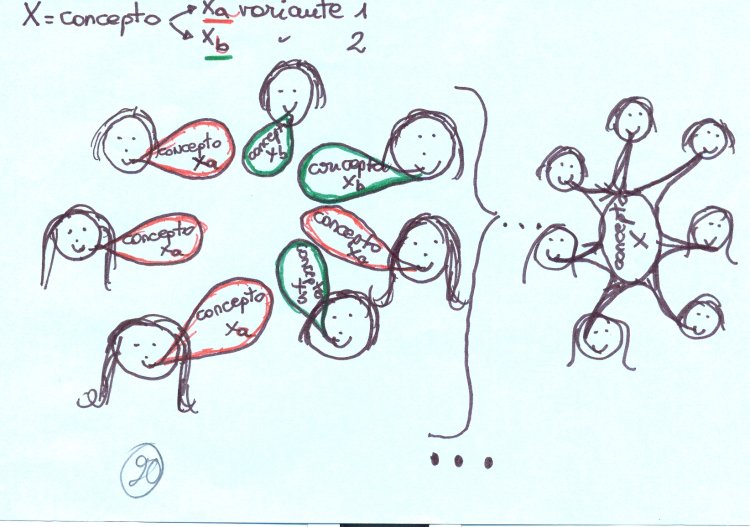 X = concepto
Xa variante 1
Xb " 2
concepto
Xa
concepto
Xb
concepto
Xb
concepto
Xa
concepto
Xa
concepto
Xa
concepto
Xb
concepto
X
...
...
20